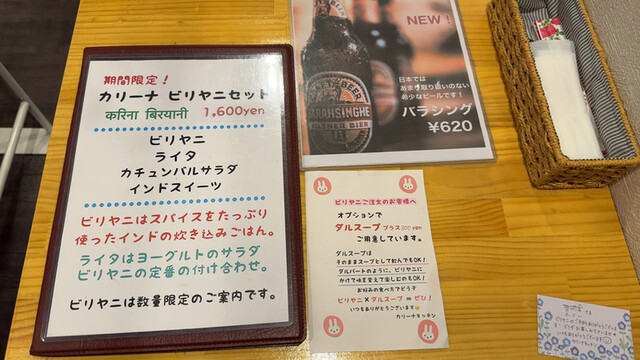 期間限定！
カリーナ ビリヤニセット
करिना बिरयानी 1,600yen
ビリヤニ
ライタ
カチュンバルサラダ
インドスイーツ
ビリヤニはスパイスをたっぷり
使ったインドの炊き込みごはん。
ライタはヨーグルトのサラダ
ビリヤニの定番の付け合わせ。
ビリヤニは数量限定のご案内です。
NEW！
BARAHSINGHE
PILSNER BIER
日本では
あまり取り扱いのない
希少なビールです！
バラシング
¥620
ビリヤニご注文のお客様へ
オプションで
ダルスープ プラス300yen
ご用意しています。
ダルスープは
そのままスープとして飲んでもOK！
ダルバートのように、ビリヤニに
かけて味を変えて楽しむのもOK！
お好みの食べ方でどうぞ
ビリヤニ×ダルスープ＝ぜひ！
いつもありがとうございます
カリーナキッチン